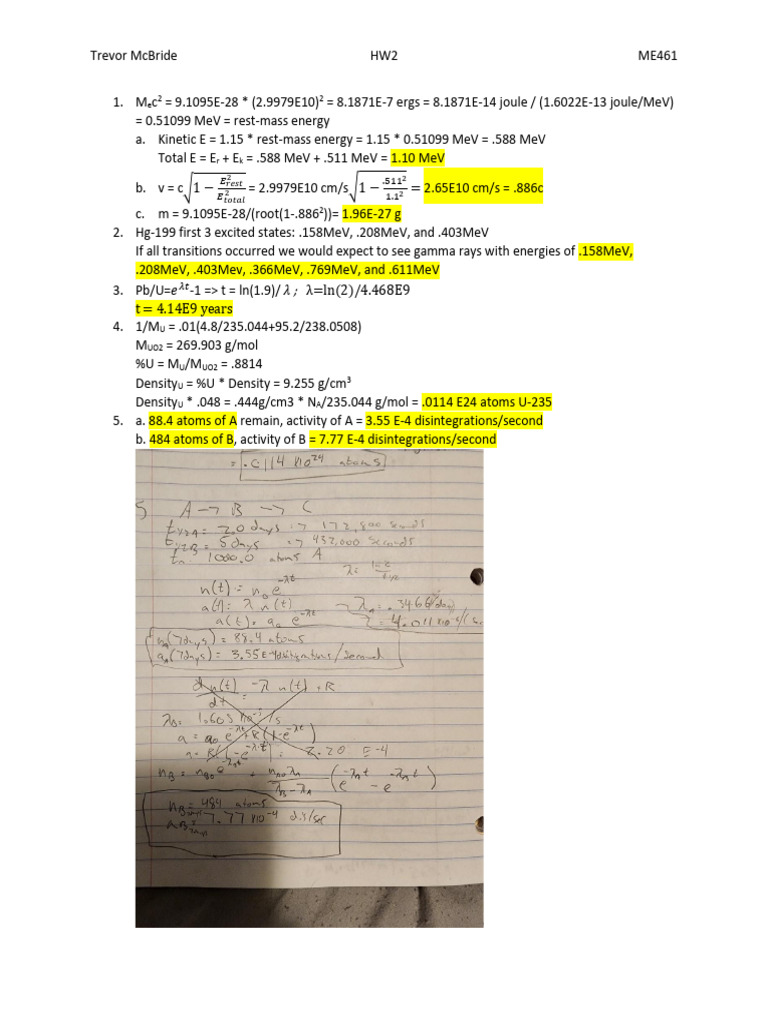 Trevor McBride HW2 ME461
1. Mₑc² = 9.1095E-28 * (2.9979E10)² = 8.1871E-7 ergs = 8.1871E-14 joule / (1.6022E-13 joule/MeV)
= 0.51099 MeV = rest-mass energy
a. Kinetic E = 1.15 * rest-mass energy = 1.15 * 0.51099 MeV = .588 MeV
Total E = Eᵣ + Eₖ = .588 MeV + .511 MeV = 1.10 MeV
b. v = c√(1 − E²rest/E²total) = 2.9979E10 cm/s√(1 − .511²/1.1²) = 2.65E10 cm/s = .886c
c. m = 9.1095E-28/(root(1-.886²))= 1.96E-27 g
2. Hg-199 first 3 excited states: .158MeV, .208MeV, and .403MeV
If all transitions occurred we would expect to see gamma rays with energies of .158MeV,
.208MeV, .403Mev, .366MeV, .769MeV, and .611MeV
3. Pb/U=e^λt-1 => t = ln(1.9)/ λ ; λ=ln(2)/4.468E9
t = 4.14E9 years
4. 1/Mᵤ = .01(4.8/235.044+95.2/238.0508)
M_UO2 = 269.903 g/mol
%U = M_U/M_UO2 = .8814
Density_U = %U * Density = 9.255 g/cm³
Density_U * .048 = .444g/cm3 * N_A/235.044 g/mol = .0114 E24 atoms U-235
5. a. 88.4 atoms of A remain, activity of A = 3.55 E-4 disintegrations/second
b. 484 atoms of B, activity of B = 7.77 E-4 disintegrations/second
= .0114 x10²⁴ atoms
5 A → B → C
t1/2A = 2.0 days => 172,800 seconds
t1/2B = 5 days => 432,000 seconds
1000.0 atoms A
λ =
n(t) = n₀e^-λt
a(t) = λ n(t) λA = .3466/day
a(t) = a₀ e^-λt = 4.011 x10
nA(7days) = 88.4 atoms
aA(7days) = 3.55E-4 disintegrations/second
dn(t)/dt = -λ n(t) + R
λB = 1.603
a = a₀ e^-λt + R(1-e^-λt)
2.20 E-4
nB = nB₀e^-λBt + nA₀λA/(λB-λA) (e^-λAt - e^-λBt)
nB 7days = 484 atoms
aB 7days = 7.77 x10⁻⁴ dis/sec